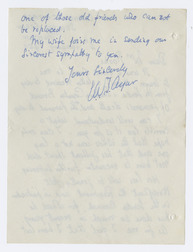 one of those old friends who can not
be replaced.
My wife joins me in sending our
sincerest sympathy to you.
Yours sincerely